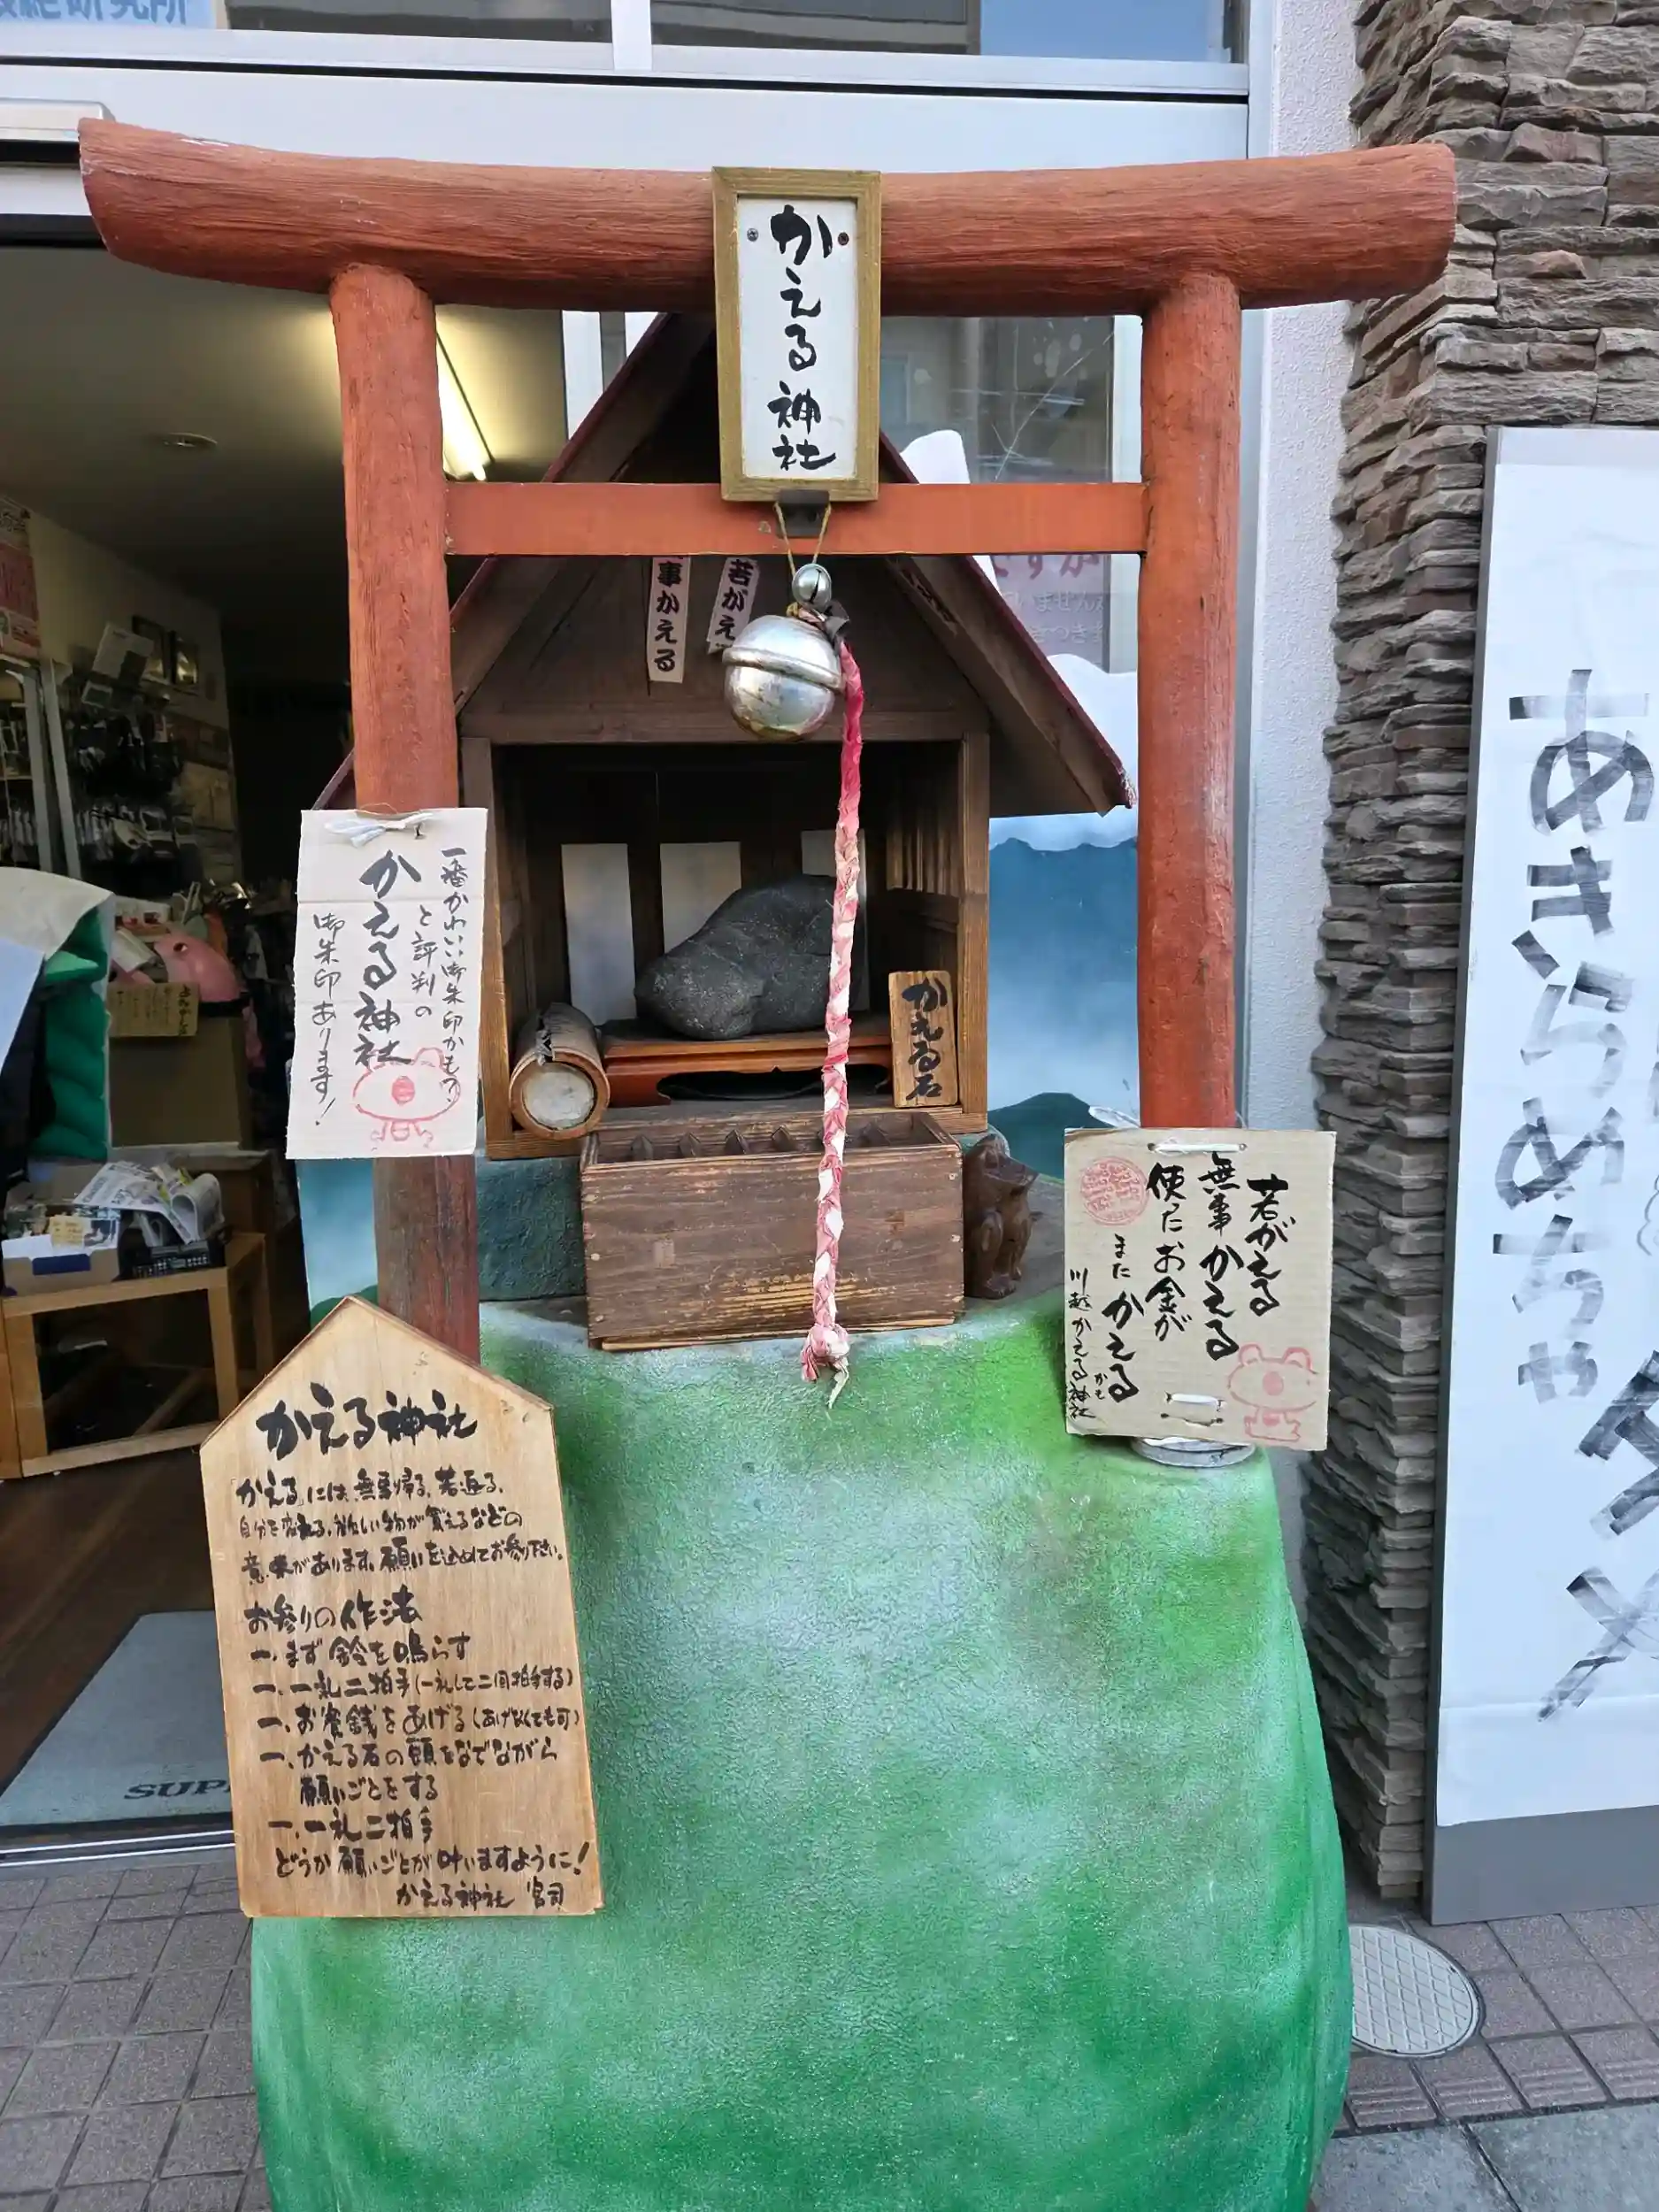 かえる神社
事かえる
若がえ
一番かわいい御朱印かも?
と評判の
かえる神社
御朱印あります!
かえる石
若がえる
無事かえる
使ったお金が
またかえる
かも
川越かえる神社
かえる神社
「かえる」には、無事帰る、若返る、
自分を変える、欲しい物が買えるなどの
意味があります。願いを込めてお参り下さい。
お参りの作法
一、まず鈴を鳴らす
一、一礼二拍手(一礼して二回拍手する)
一、お賽銭をあげる(あげなくても可)
一、かえる石の頭をなでながら
願いごとをする
一、一礼二拍手
どうか願いごとが叶いますように!
かえる神社 宮司
あきらめちゃ
ダメ
SUP